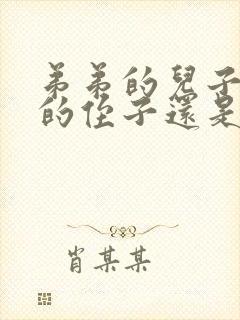 弟弟的兒子
的侄子還是
肖某某